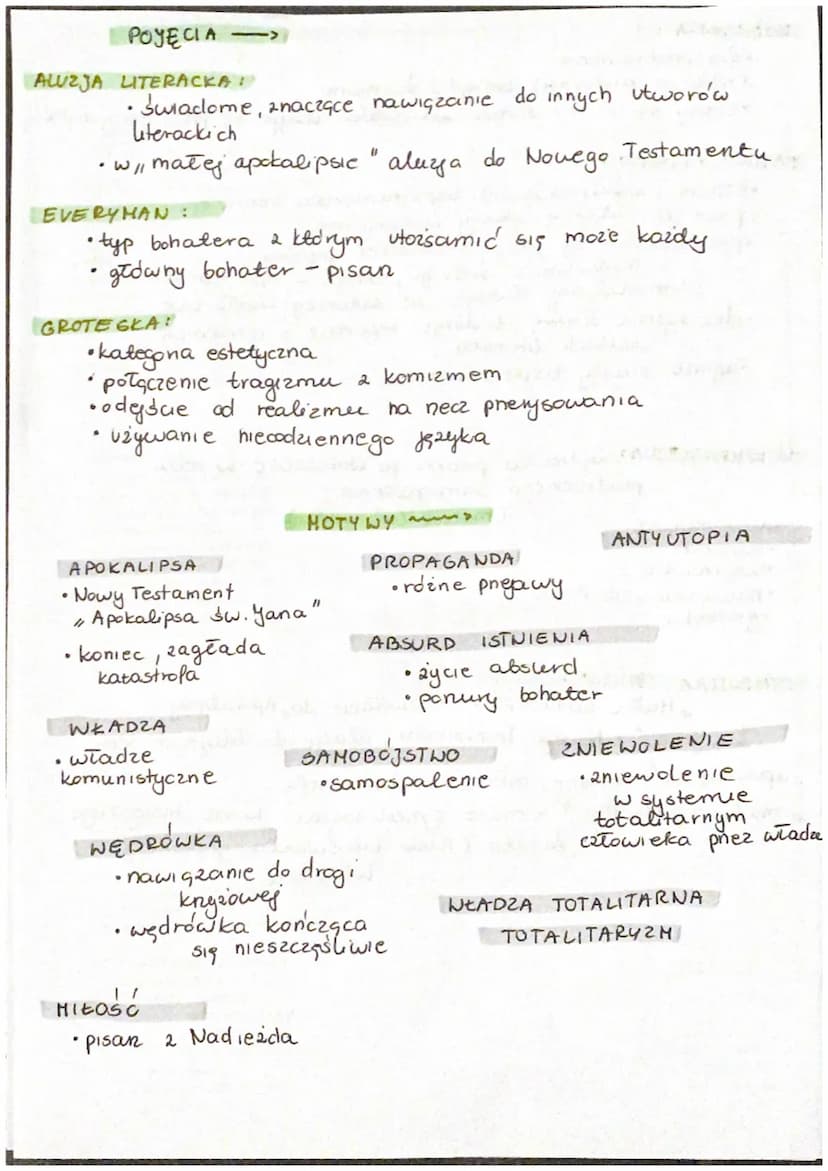 POJĘCIA →
ALUZJA LITERACKA:
• świadome, znaczące nawiązanie do innych utworów
literackich
• w „małej apokalipsie" aluzja do Nowego Testamentu
EVERYMAN:
• typ bohatera z którym utożsamić się może każdy
• główny bohater – pisarz
GROTESKA:
• kategoria estetyczna
• połączenie tragizmu z komizmem
• odejście od realizmu na rzecz przerysowania
• używanie niecodziennego języka
MOTYWY →
APOKALIPSA
• Nowy Testament
„Apokalipsa św. Jana"
• koniec, zagłada
katastrofa
PROPAGANDA
• różne przejawy
ANTYUTOPIA
ABSURD ISTNIENIA
• życie absurd
• ponury bohater
WŁADZA
• władze
komunistyczne
SAMOBÓJSTWO
• samospalenie
ZNIEWOLENIE
• zniewolenie
w systemie
totalitarnym
człowieka przez władzę
WĘDRÓWKA
• nawiązanie do drogi
krzyżowej
• wędrówka kończąca
się nieszczęśliwie
WŁADZA TOTALITARNA
TOTALITARYZM
MIŁOŚĆ
• pisarz z Nadieżda